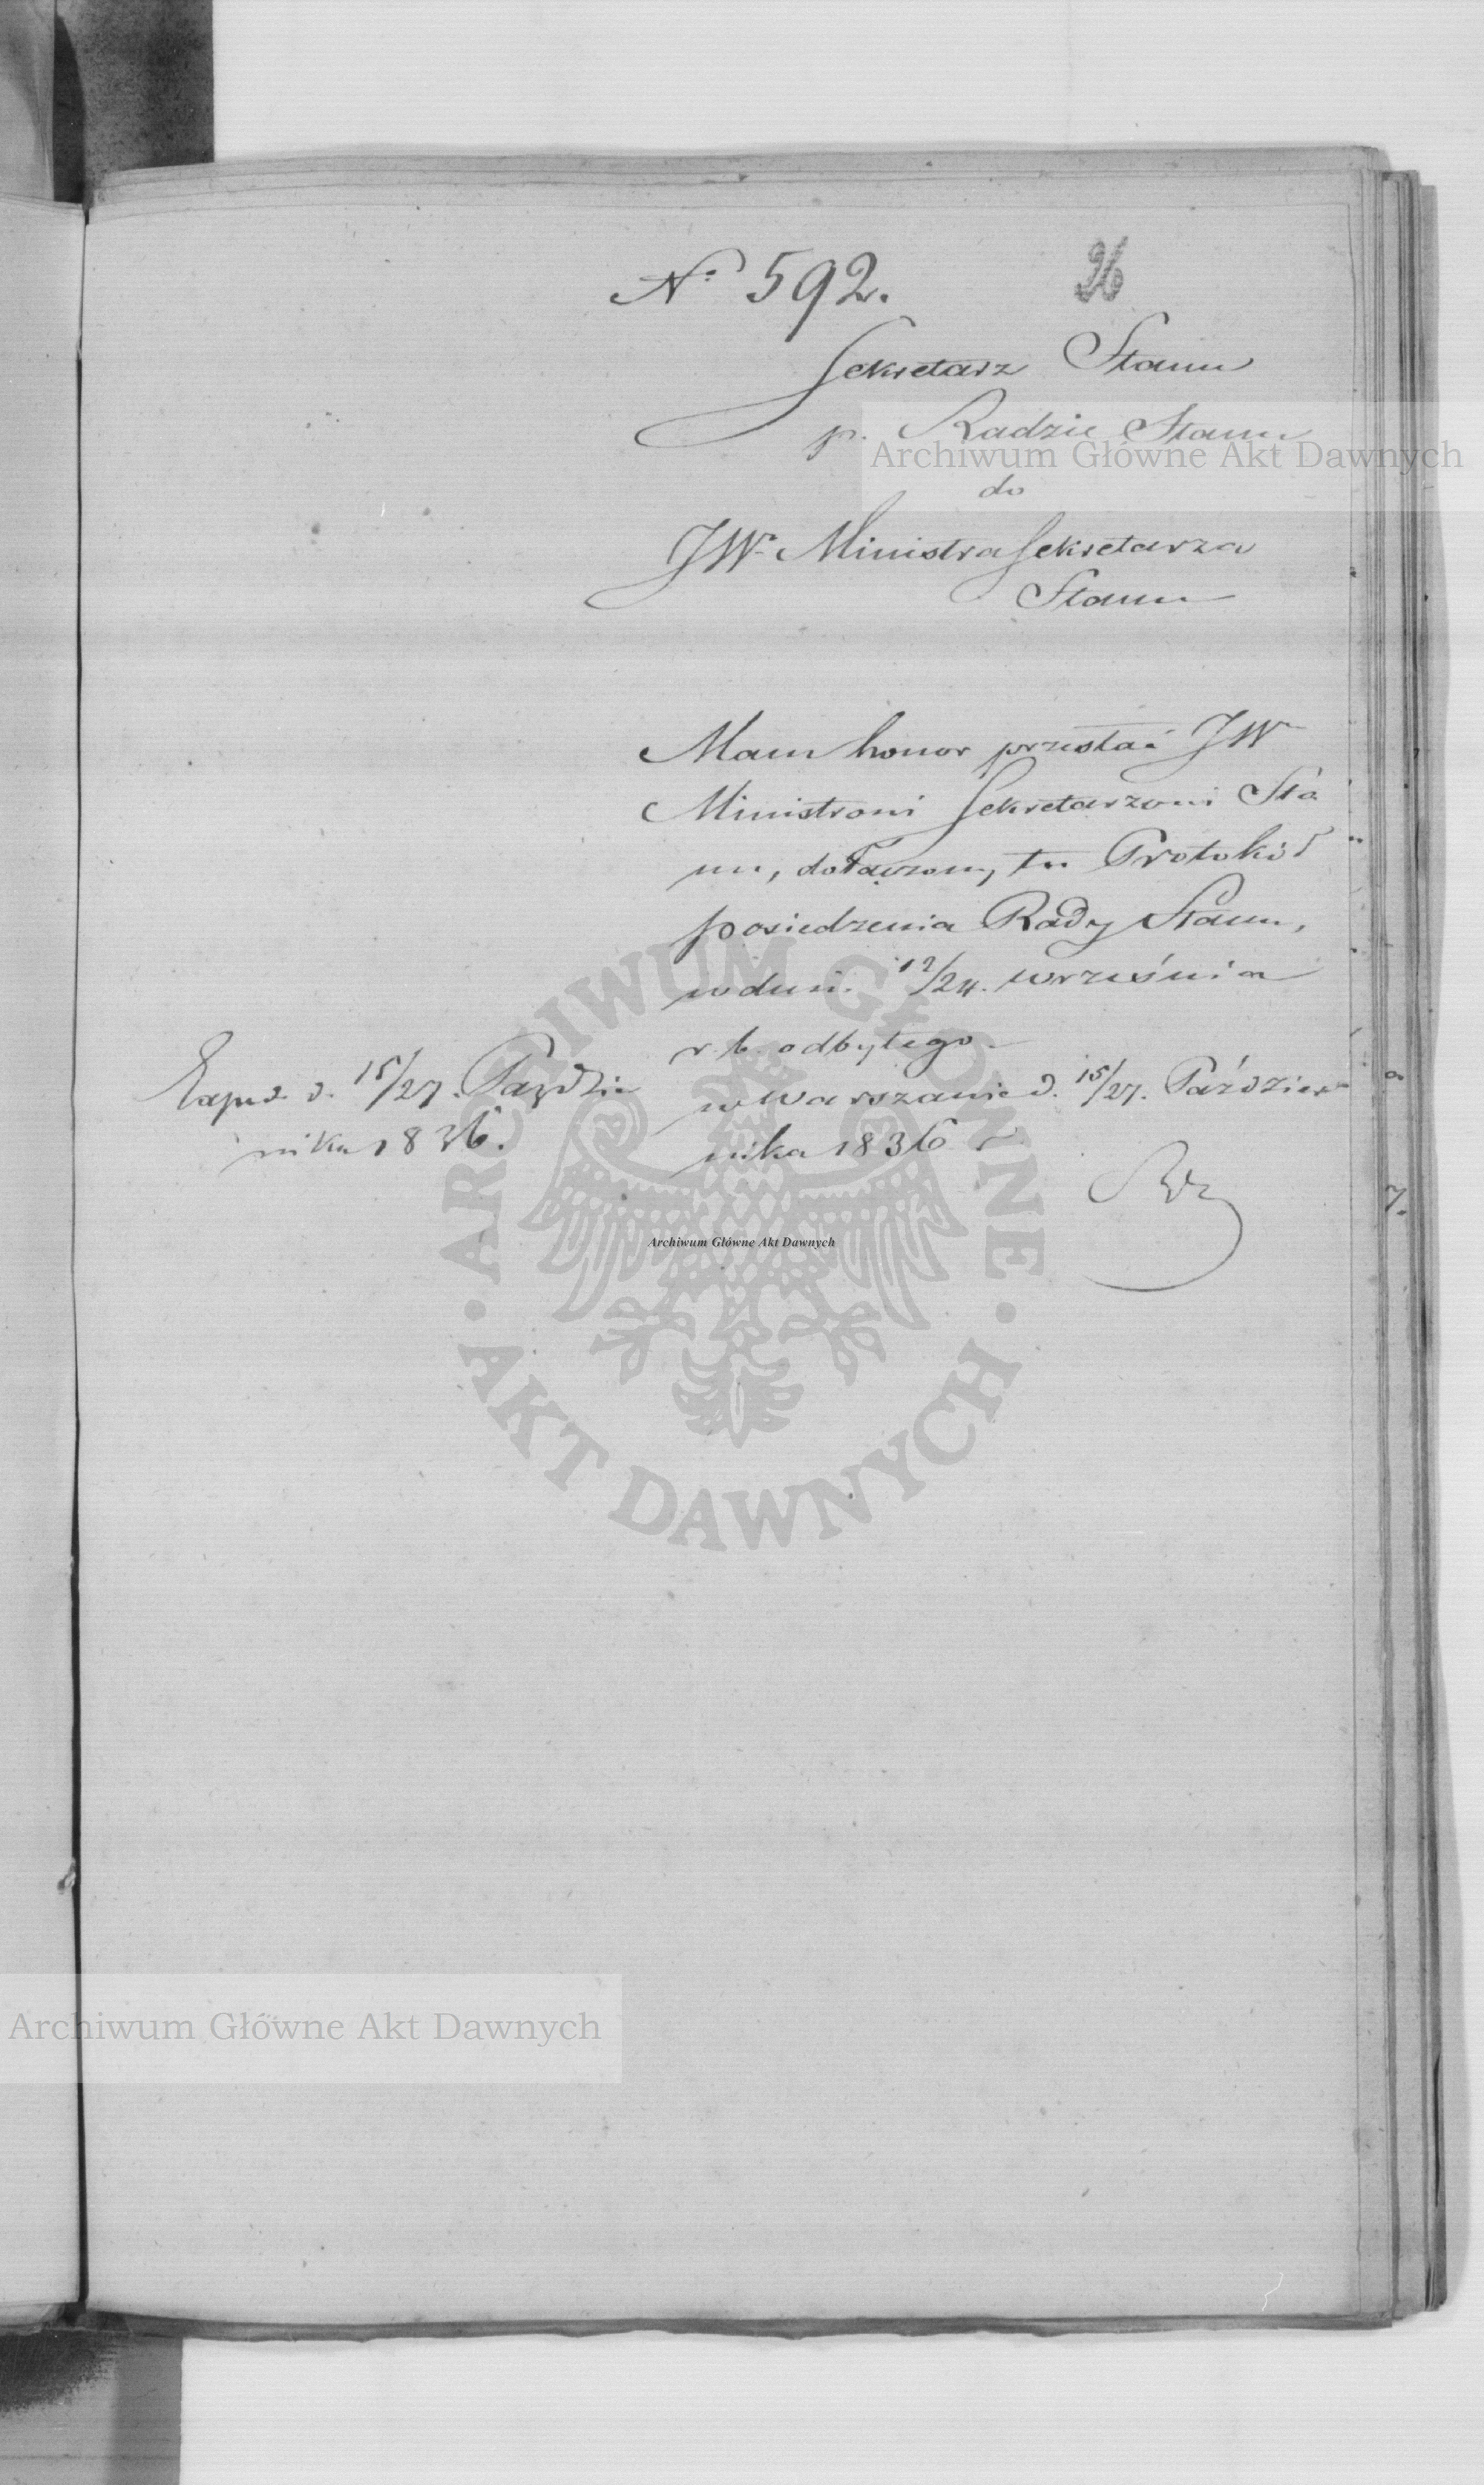 Nº 592.
26
Sekretarz Stanu
p. Radzie Stanu
do
JW. Ministra Sekretarza
Stanu
Mam honor przesłać JW
Ministrowi Sekretarzowi Sta
nu, dołączony tu Protokół
posiedzenia Rady Stanu,
w dni. 12/24. września
r. b. odbytego.
w Warszawie d. 15/27. Paździer
nika 1836 r
Exped. d. 15/27. Paździe
nika 1836.
Archiwum Główne Akt Dawnych
ARCHIWUM GŁÓWNE
AKT DAWNYCH
Archiwum Główne Akt Dawnych
Archiwum Główne Akt Dawnych